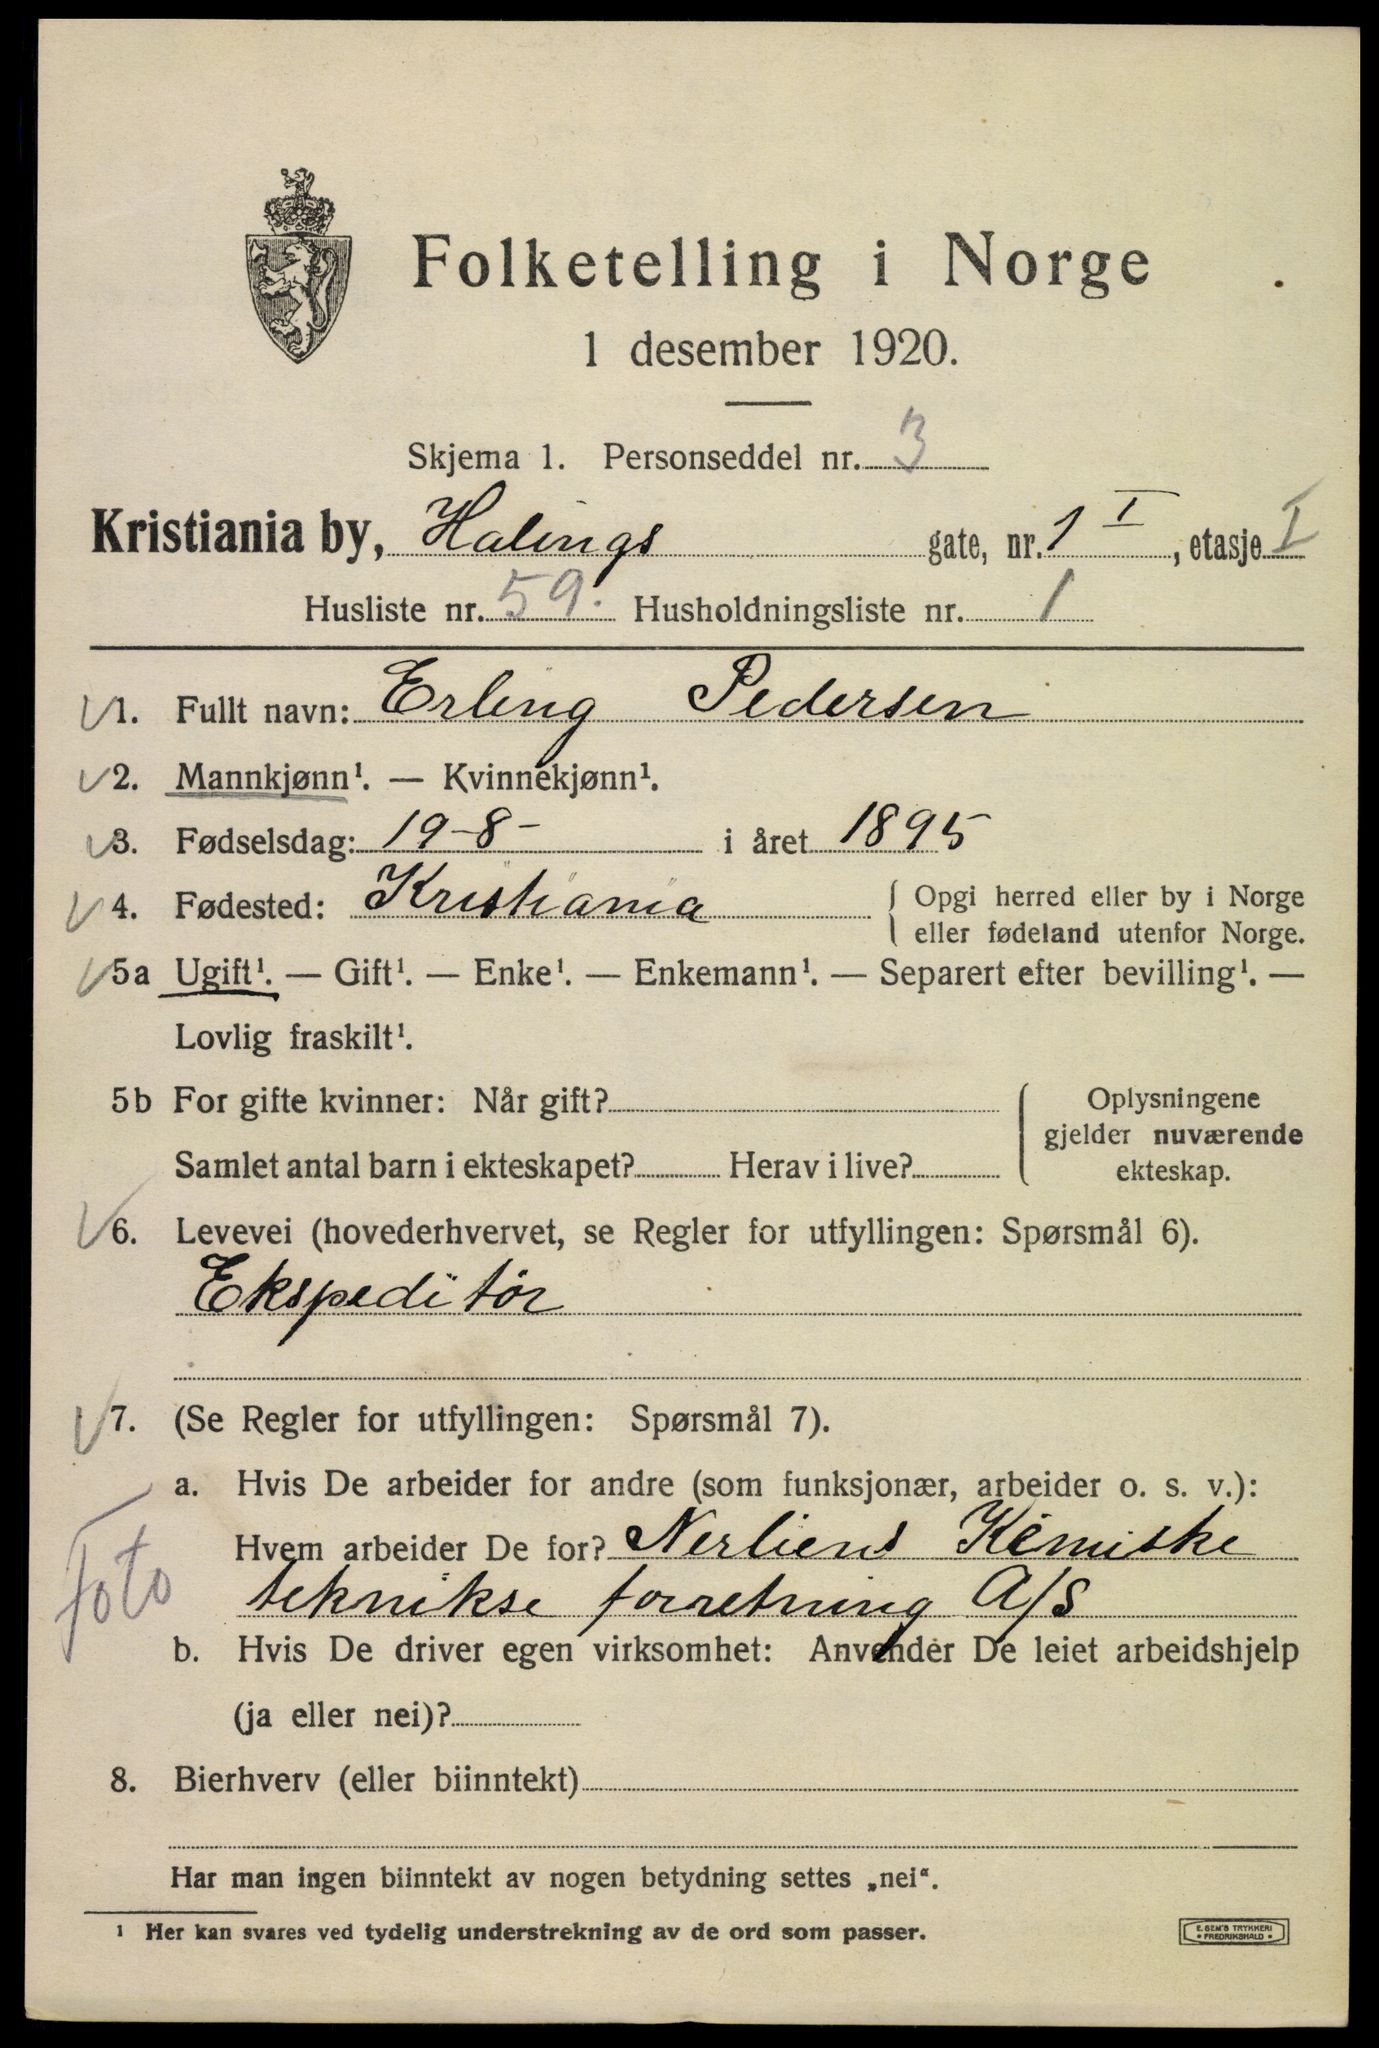 Folketelling i Norge
1 desember 1920.
Skjema 1. Personseddel nr. 3
Kristiania by, Halings gate, nr. 1 I, etasje I
Husliste nr. 59. Husholdningsliste nr. 1
1. Fullt navn: Erling Pedersen
2. Mannkjønn¹. — Kvinnekjønn¹.
3. Fødselsdag: 19-8- i året 1895
4. Fødested: Kristiania { Opgi herred eller by i Norge
eller fødeland utenfor Norge.
5a Ugift¹. — Gift¹. — Enke¹. — Enkemann¹. — Separert efter bevilling¹. —
Lovlig fraskilt¹.
5b For gifte kvinner: Når gift?
Samlet antal barn i ekteskapet? Herav i live?
Oplysningene
gjelder nuværende
ekteskap.
6. Levevei (hovederhvervet, se Regler for utfyllingen: Spørsmål 6).
Ekspeditør
7. (Se Regler for utfyllingen: Spørsmål 7).
a. Hvis De arbeider for andre (som funksjonær, arbeider o. s. v.):
Hvem arbeider De for? Nerliens Kemiske
teknikse forretning A/S
Foto
b. Hvis De driver egen virksomhet: Anvender De leiet arbeidshjelp
(ja eller nei)?
8. Bierhverv (eller biinntekt)
Har man ingen biinntekt av nogen betydning settes „nei“.
¹ Her kan svares ved tydelig understrekning av de ord som passer.
E. SEM'S TRYKKERI
* FREDRIKSHALD *